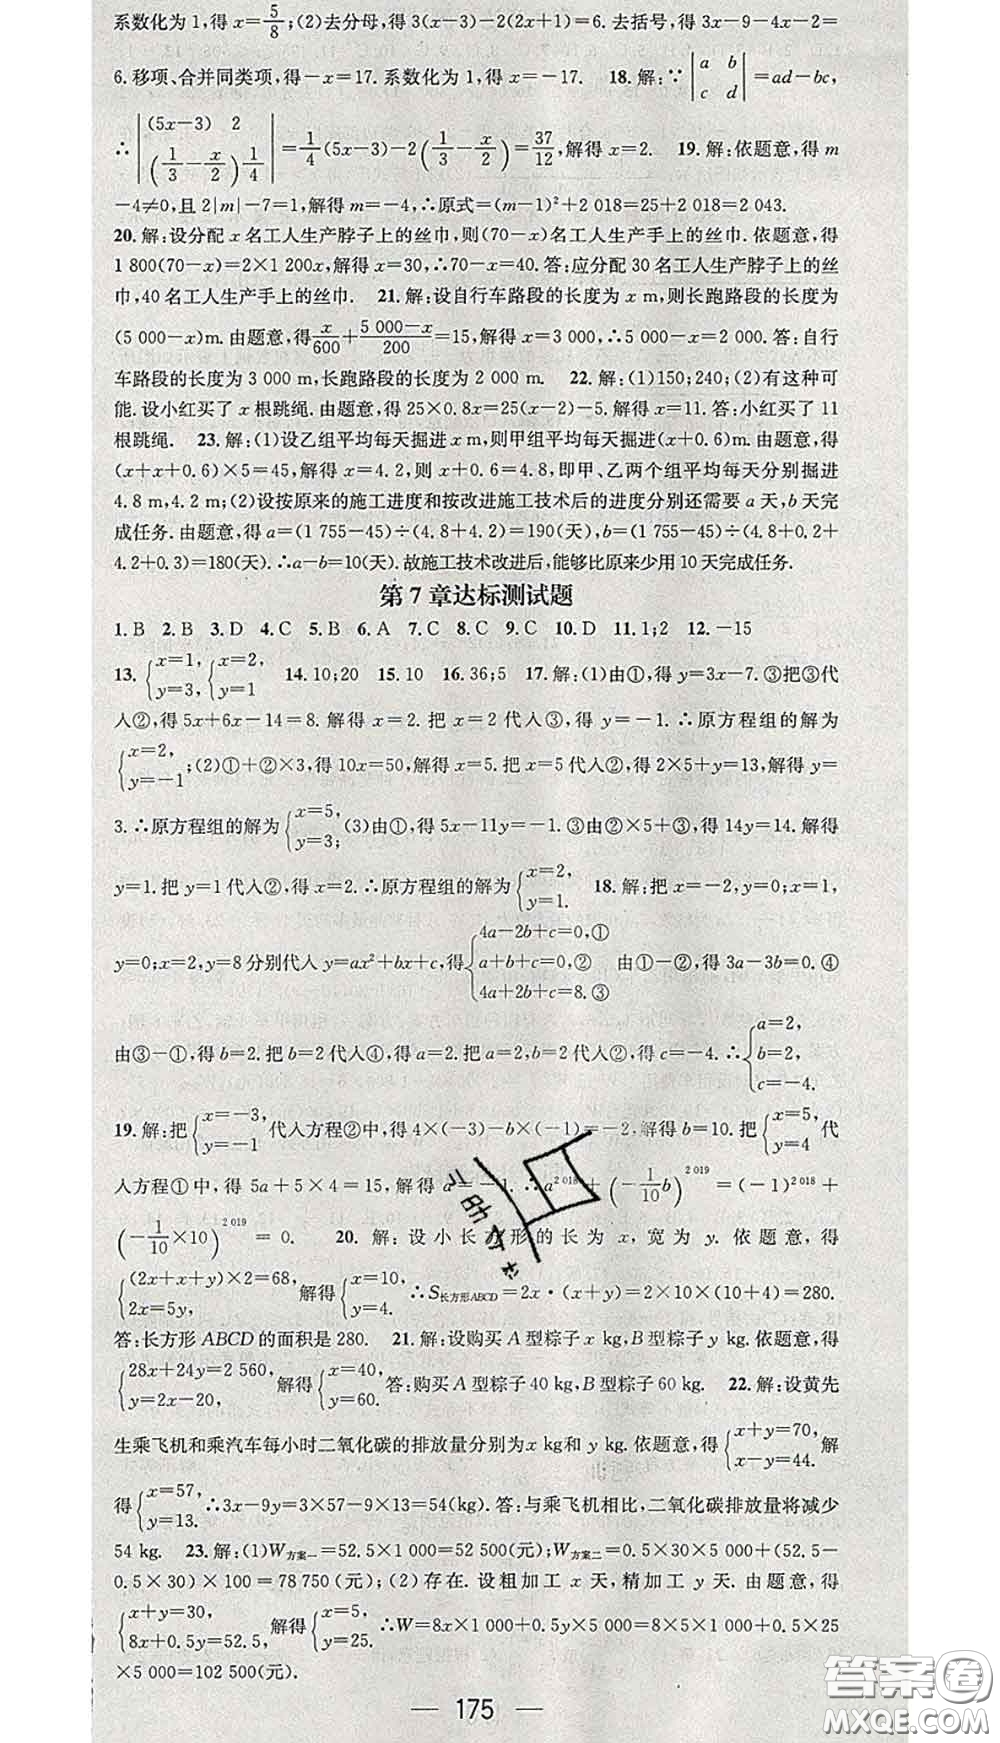 系数化为 1,得 x=5/8;(2)去分母,得 3(x-3)-2(2x+1)=6. 去括号,得 3x-9-4x-2=
6. 移项、合并同类项,得-x=17. 系数化为 1,得 x=-17. 18. 解:∵|a b c d|=ad-bc,
∴|(5x-3) 2 (1/3-x/2) 1/4|=1/4(5x-3)-2(1/3-x/2)=37/12,解得 x=2. 19. 解:依题意,得 m
-4≠0,且 2|m|-7=1,解得 m=-4,∴原式=(m-1)²+2 018=25+2 018=2 043.
20. 解:设分配 x 名工人生产脖子上的丝巾,则(70-x)名工人生产手上的丝巾. 依题意,得
1 800(70-x)=2×1 200x,解得 x=30,∴70-x=40. 答:应分配 30 名工人生产脖子上的丝
巾,40 名工人生产手上的丝巾. 21. 解:设自行车路段的长度为 x m,则长跑路段的长度为
(5 000-x)m. 由题意,得x/600+(5 000-x)/200=15,解得 x=3 000,∴5 000-x=2 000. 答:自行
车路段的长度为 3 000 m,长跑路段的长度为 2 000 m. 22. 解:(1)150;240;(2)有这种可
能. 设小红买了 x 根跳绳. 由题意,得 25×0.8x=25(x-2)-5. 解得 x=11. 答:小红买了 11
根跳绳. 23. 解:(1)设乙组平均每天掘进 x m,则甲组平均每天掘进(x+0.6)m. 由题意,得
(x+x+0.6)×5=45,解得 x=4.2,则 x+0.6=4.8,即甲、乙两个组平均每天分别掘进
4.8 m,4.2 m;(2)设按原来的施工进度和按改进施工技术后的进度分别还需要 a 天,b 天完
成任务. 由题意,得 a=(1 755-45)÷(4.8+4.2)=190(天),b=(1 755-45)÷(4.8+0.2+
4.2+0.3)=180(天). ∴a-b=10(天). 故施工技术改进后,能够比原来少用 10 天完成任务.
第 7 章达标测试题
1. B 2. B 3. D 4. C 5. B 6. A 7. C 8. C 9. C 10. D 11. 1;2 12. -15
13. {x=1, y=3, {x=2, y=1 14. 10;20 15. 10 16. 36;5 17. 解:(1)由①,得 y=3x-7. ③把③代
入②,得 5x+6x-14=8. 解得 x=2. 把 x=2 代入③,得 y=-1. ∴原方程组的解为
{x=2, y=-1;(2)①+②×3,得 10x=50,解得 x=5. 把 x=5 代入①,得 2×5+y=13,解得 y=
3. ∴原方程组的解为{x=5, y=3;(3)由①,得 5x-11y=-1. ③由②×5+③,得 14y=14. 解得
y=1. 把 y=1 代入②,得 x=2. ∴原方程组的解为{x=2, y=1. 18. 解:把 x=-2,y=0;x=1,
y=0;x=2,y=8 分别代入 y=ax²+bx+c,得{4a-2b+c=0,① a+b+c=0,② 4a+2b+c=8.③ 由①-②,得 3a-3b=0. ④
由③-①,得 b=2. 把 b=2 代入④,得 a=2. 把 a=2,b=2 代入②,得 c=-4. ∴{a=2, b=2, c=-4.
19. 解:把{x=-3, y=-1代入方程②中,得 4×(-3)-b×(-1)=-2,解得 b=10. 把{x=5, y=4代
入方程①中,得 5a+5×4=15,解得 a=-1. ∴a²⁰¹⁸+(-1/10 b)²⁰¹⁹=(-1)²⁰¹⁸+
(-1/10×10)²⁰¹⁹=0. 20. 解:设小长方形的长为 x,宽为 y. 依题意,得
{(2x+x+y)×2=68, 2x=5y, 解得{x=10, y=4. ∴S长方形ABCD=2x·(x+y)=2×10×(10+4)=280.
答:长方形 ABCD 的面积是 280. 21. 解:设购买 A 型粽子 x kg,B 型粽子 y kg. 依题意,得
{28x+24y=2 560, y=2x-20, 解得{x=40, y=60. 答:购买 A 型粽子 40 kg,B 型粽子 60 kg. 22. 解:设黄先
生乘飞机和乘汽车每小时二氧化碳的排放量分别为 x kg和 y kg. 依题意,得{x+y=70, x-y=44. 解
得{x=57, y=13. ∴3x-9y=3×57-9×13=54(kg). 答:与乘飞机相比,二氧化碳排放量将减少
54 kg. 23. 解:(1)W方案一=52.5×1 000=52 500(元);W方案二=0.5×30×5 000+(52.5-
0.5×30)×100=78 750(元);(2)存在. 设粗加工 x 天,精加工 y 天. 由题意,得
{x+y=30, 8x+0.5y=52.5, 解得{x=5, y=25. ∴W=8x×1 000+0.5y×5 000=8×5×1 000+0.5×25
×5 000=102 500(元).
— 175 —
答案圈
MXQE.COM